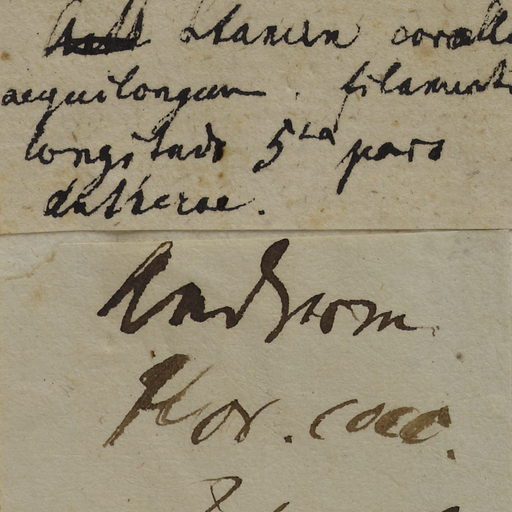 stamen corolla
aequilongum. filamenti
longitudo 5ta pars
antherae.
Androm
flor. cocc.